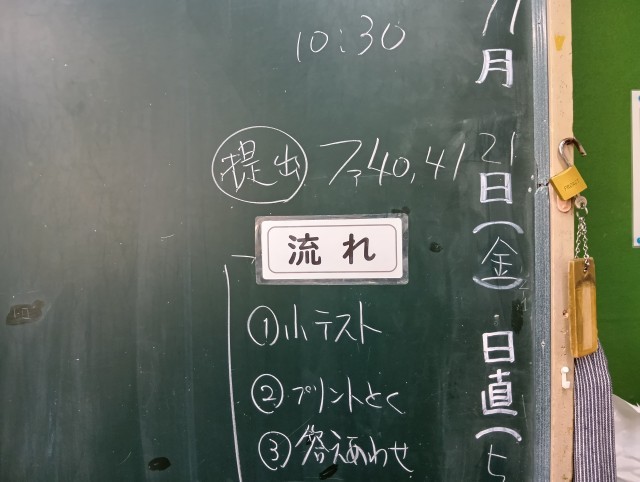 11月21日(金)
日直(5
10:30
提出 ファ40,41
流れ
①小テスト
②プリントとく
③答えあわせ